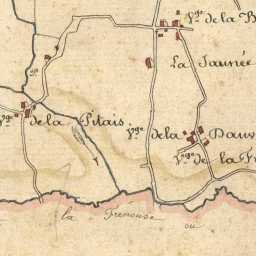 Vge. de la B
La Jaunée
Vge. de la Pitais
Vge. de la Dauv
Vge. de la Fr
la Frenouse ou